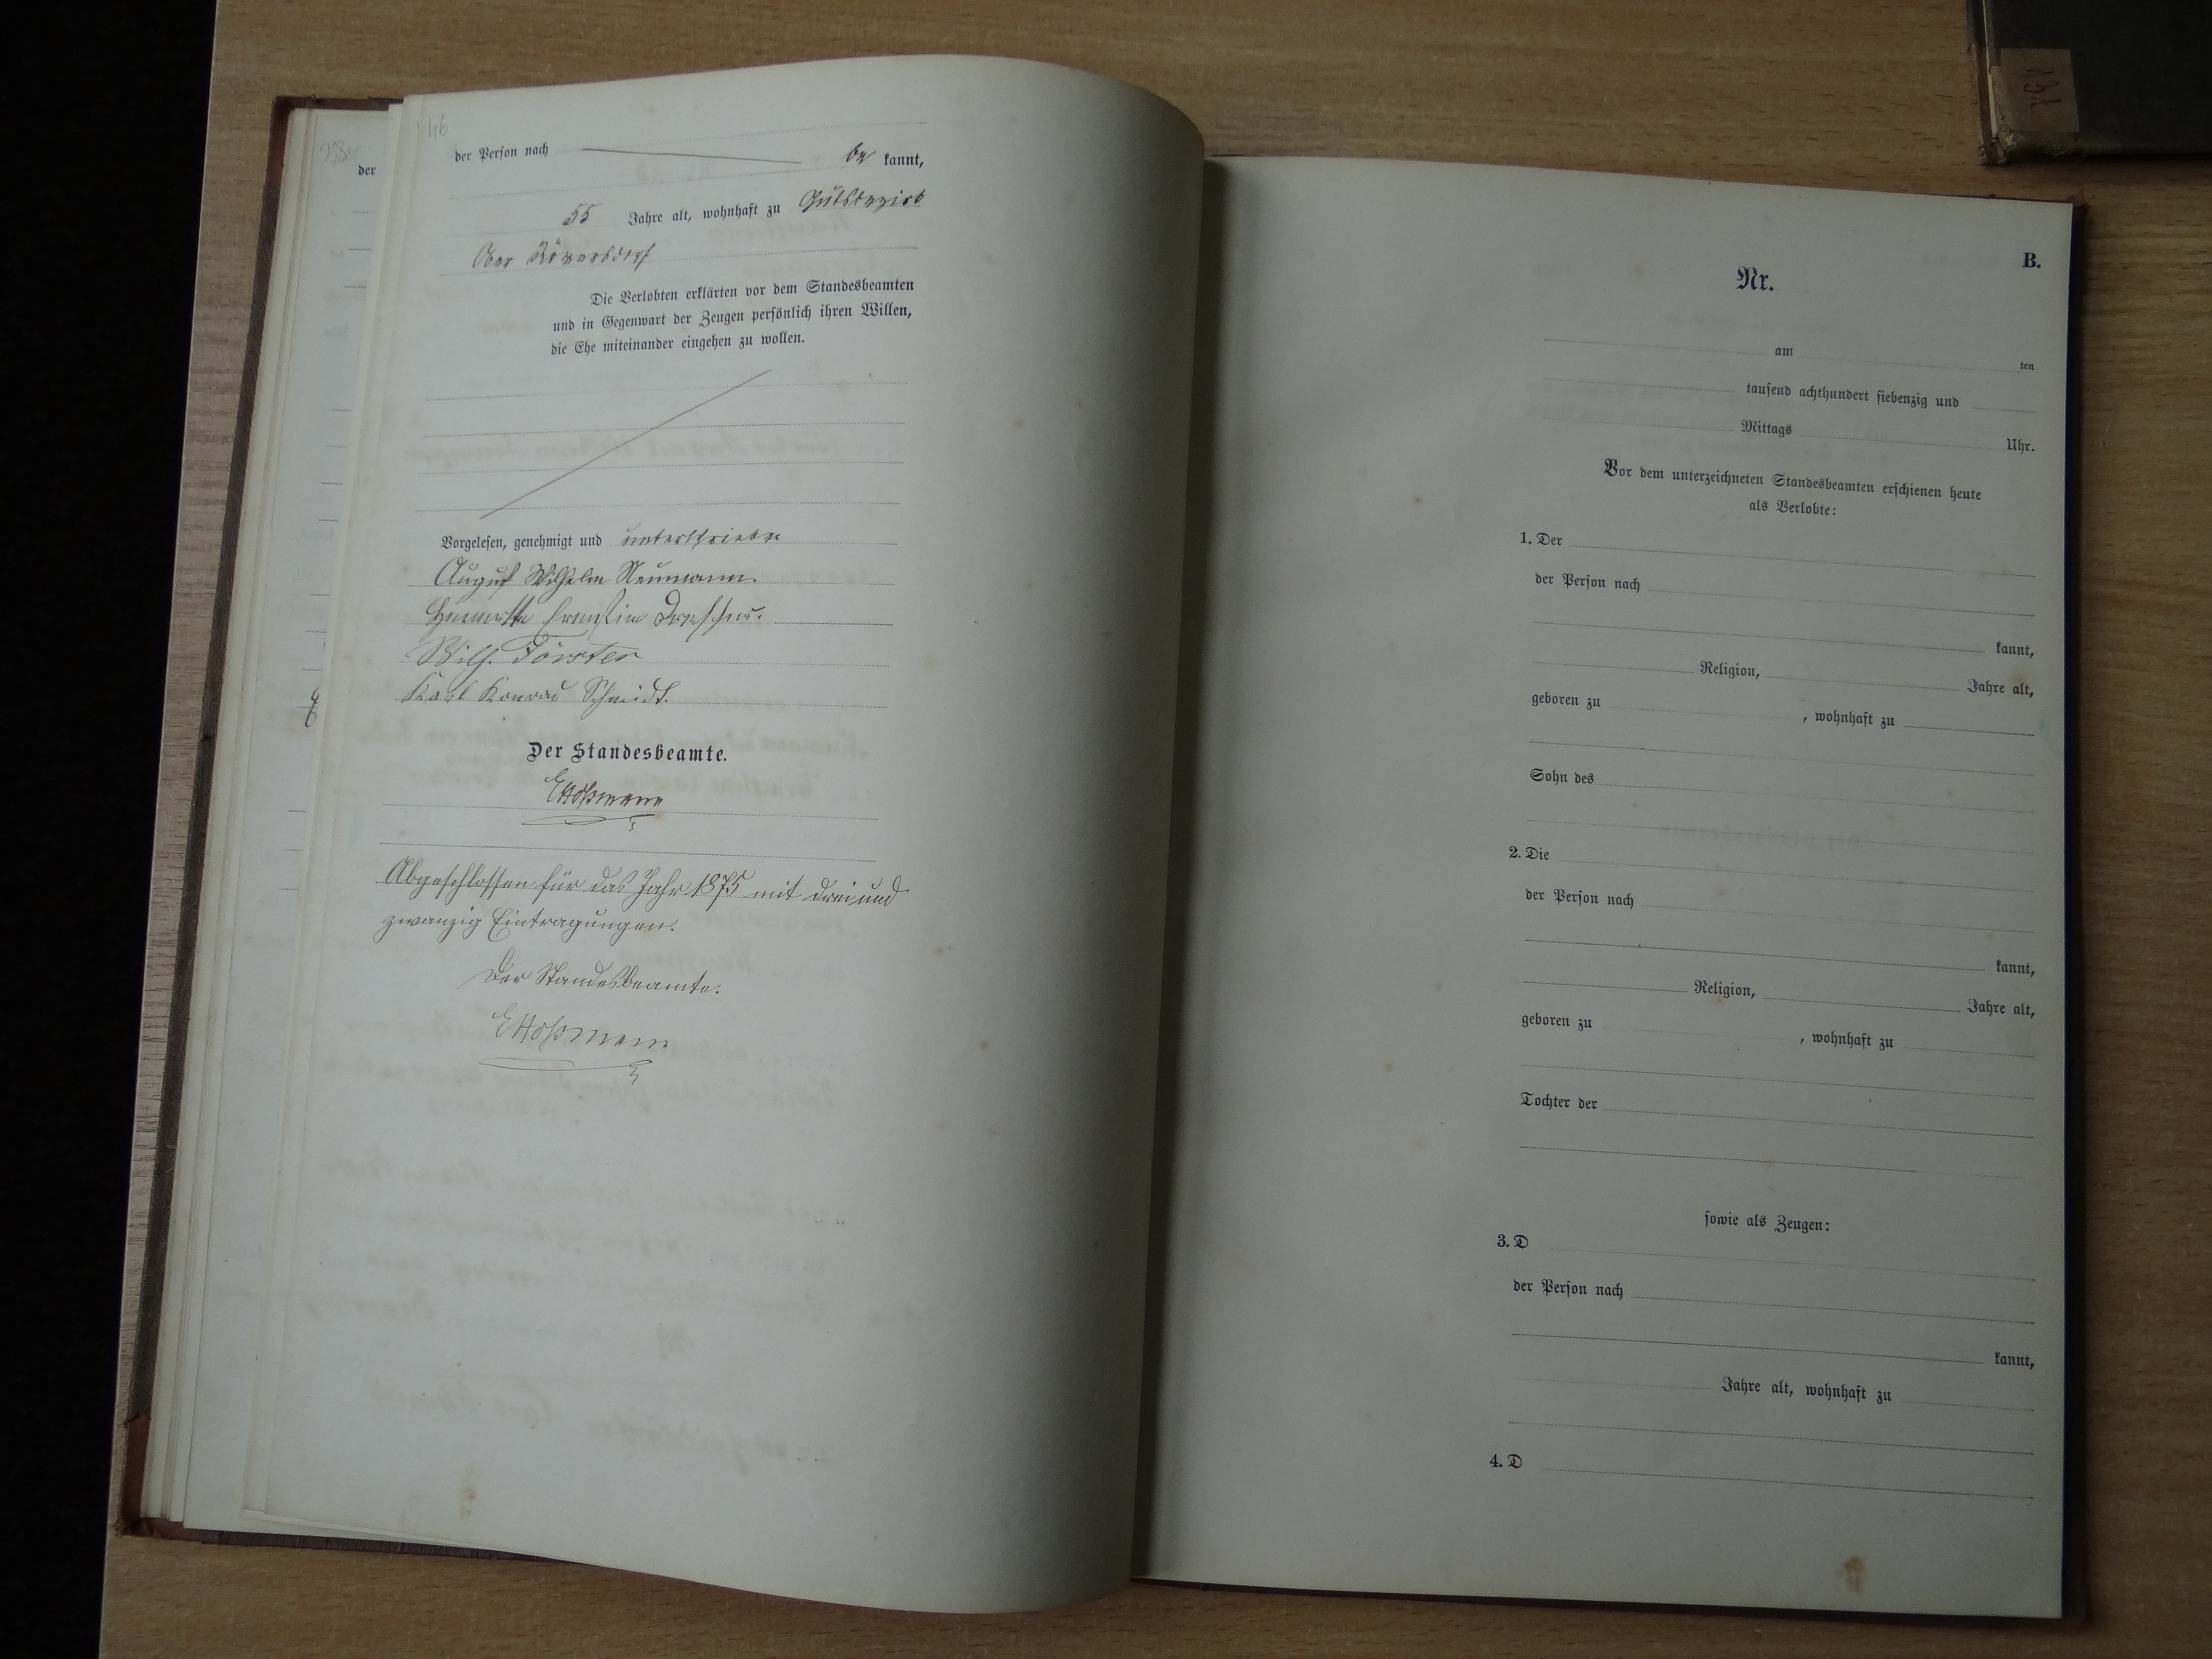 46
der
der Person nach be kannt,
55 Jahre alt, wohnhaft zu Gutsbezirk
Ober Röversdorf
Die Verlobten erklärten vor dem Standesbeamten
und in Gegenwart der Zeugen persönlich ihren Willen,
die Ehe miteinander eingehen zu wollen.
Vorgelesen, genehmigt und unterschrieben
August Wilhelm Neumann.
Ernestine
Wilh. Förster
Karl Konrad Schmidt.
Der Standesbeamte.
Abgeschlossen für das Jahr 1875 mit drei und
zwanzig Eintragungen.
Der Standesbeamte.
B.
Nr.
am ten
tausend achthundert siebenzig und
Mittags Uhr.
Vor dem unterzeichneten Standesbeamten erschienen heute
als Verlobte:
1. Der
der Person nach
kannt,
Religion, Jahre alt,
geboren zu , wohnhaft zu
Sohn des
2. Die
der Person nach
kannt,
Religion, Jahre alt,
geboren zu , wohnhaft zu
Tochter der
sowie als Zeugen:
3. D
der Person nach
kannt,
Jahre alt, wohnhaft zu
4. D